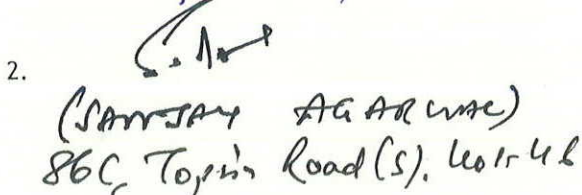 2.
(SANJAY AGARWAL)
86C, Topsia Road (S), Kol-46